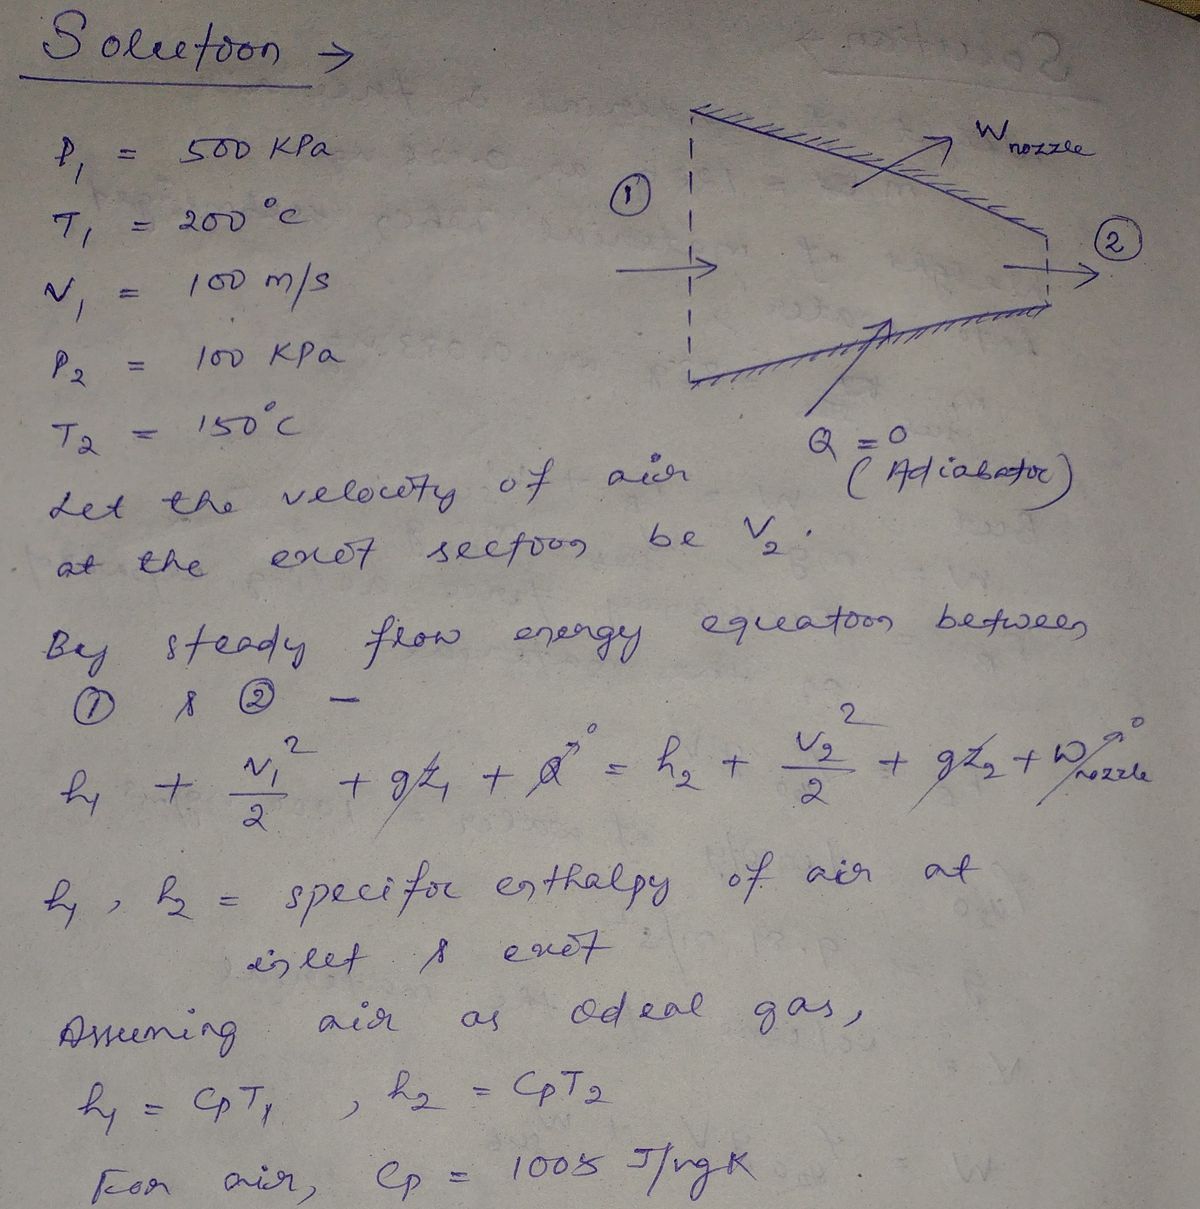 Solution →
P₁ = 500 KPa
T₁ = 200°C
V₁ = 100 m/s
P₂ = 100 KPa
T₂ = 150°C
W nozzle
①
②
Q = 0
(Adiabatic)
Let the velocity of air
at the exit section be V₂.
By steady flow energy equation between
① & ② —
h₁ + V₁²/2 + gz₁ + Q↗⁰ = h₂ + V₂²/2 + gz₂ + W nozzle↗⁰
h₁, h₂ = specific enthalpy of air at
inlet & exit
Assuming air as ideal gas,
h₁ = CpT₁, h₂ = CpT₂
For air, Cp = 1005 J/kgK